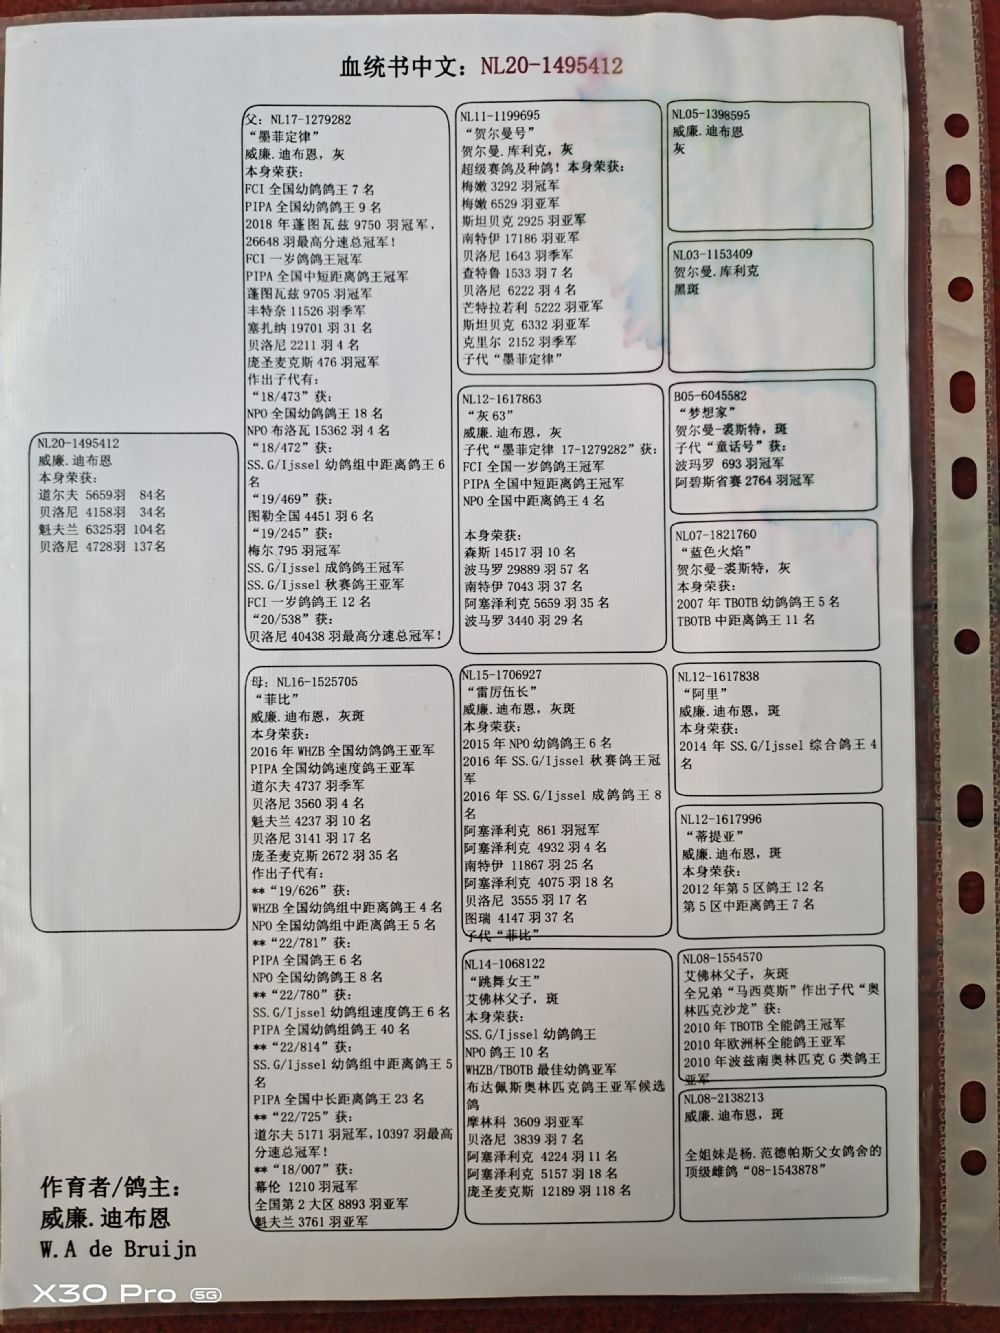 血统书中文：NL20-1495412
NL20-1495412
威廉.迪布恩
本身荣获：
道尔夫 5659羽 84名
贝洛尼 4158羽 34名
魁夫兰 6325羽 104名
贝洛尼 4728羽 137名
父：NL17-1279282
“墨菲定律”
威廉.迪布恩，灰
本身荣获：
FCI 全国幼鸽鸽王 7 名
PIPA 全国幼鸽鸽王 9 名
2018 年蓬图瓦兹 9750 羽冠军，
26648 羽最高分速总冠军！
FCI 一岁鸽鸽王冠军
PIPA 全国中短距离鸽王冠军
蓬图瓦兹 9705 羽冠军
丰特奈 11526 羽季军
塞扎纳 19701 羽 31 名
贝洛尼 2211 羽 4 名
庞圣麦克斯 476 羽冠军
作出子代有：
“18/473”获：
NPO 全国幼鸽鸽王 18 名
NPO 布洛瓦 15362 羽 4 名
“18/472”获：
SS.G/Ijssel 幼鸽组中距离鸽王 6
名
“19/469”获：
图勒全国 4451 羽 6 名
“19/245”获：
梅尔 795 羽冠军
SS.G/Ijssel 成鸽鸽王冠军
SS.G/Ijssel 秋赛鸽王亚军
FCI 一岁鸽鸽王 12 名
“20/538”获：
贝洛尼 40438 羽最高分速总冠军！
母：NL16-1525705
“菲比”
威廉.迪布恩，灰斑
本身荣获：
2016 年 WHZB 全国幼鸽鸽王亚军
PIPA 全国幼鸽速度鸽王亚军
道尔夫 4737 羽季军
贝洛尼 3560 羽 4 名
魁夫兰 4237 羽 10 名
贝洛尼 3141 羽 17 名
庞圣麦克斯 2672 羽 35 名
作出子代有：
**“19/626”获：
WHZB 全国幼鸽组中距离鸽王 4 名
NPO 全国幼鸽组中距离鸽王 5 名
**“22/781”获：
PIPA 全国鸽王 6 名
NPO 全国幼鸽鸽王 8 名
**“22/780”获：
SS.G/Ijssel 幼鸽组速度鸽王 6 名
PIPA 全国幼鸽组鸽王 40 名
**“22/814”获：
SS.G/Ijssel 幼鸽组中距离鸽王 5
名
PIPA 全国中长距离鸽王 23 名
**“22/725”获：
道尔夫 5171 羽冠军,10397 羽最高
分速总冠军！
**“18/007”获：
幕伦 1210 羽冠军
全国第 2 大区 8893 羽亚军
魁夫兰 3761 羽亚军
NL11-1199695
“贺尔曼号”
贺尔曼.库利克，灰
超级赛鸽及种鸽！本身荣获：
梅嫩 3292 羽冠军
梅嫩 6529 羽亚军
斯坦贝克 2925 羽亚军
南特伊 17186 羽亚军
贝洛尼 1643 羽季军
查特鲁 1533 羽 7 名
贝洛尼 6222 羽 4 名
芒特拉若利 5222 羽亚军
斯坦贝克 6332 羽亚军
克里尔 2152 羽季军
子代“墨菲定律”
NL12-1617863
“灰 63”
威廉.迪布恩，灰
子代“墨菲定律 17-1279282”获：
FCI 全国一岁鸽鸽王冠军
PIPA 全国中短距离鸽王冠军
NPO 全国中距离鸽王 4 名
本身荣获：
森斯 14517 羽 10 名
波马罗 29889 羽 57 名
南特伊 7043 羽 37 名
阿塞泽利克 5659 羽 35 名
波马罗 3440 羽 29 名
NL15-1706927
“雷厉伍长”
威廉.迪布恩，灰斑
本身荣获：
2015 年 NPO 幼鸽鸽王 6 名
2016 年 SS.G/Ijssel 秋赛鸽王冠
军
2016 年 SS.G/Ijssel 成鸽鸽王 8
名
阿塞泽利克 861 羽冠军
阿塞泽利克 4932 羽 4 名
南特伊 11867 羽 25 名
阿塞泽利克 4075 羽 18 名
贝洛尼 3555 羽 17 名
图瑞 4147 羽 37 名
子代“菲比”
NL14-1068122
“跳舞女王”
艾佛林父子，斑
本身荣获：
SS.G/Ijssel 幼鸽鸽王
NPO 鸽王 10 名
WHZB/TBOTB 最佳幼鸽亚军
布达佩斯奥林匹克鸽王亚军候选
鸽
摩林科 3609 羽亚军
贝洛尼 3839 羽 7 名
阿塞泽利克 4224 羽 11 名
阿塞泽利克 5157 羽 18 名
庞圣麦克斯 12189 羽 118 名
NL05-1398595
威廉.迪布恩
灰
NL03-1153409
贺尔曼.库利克
黑斑
B05-6045582
“梦想家”
贺尔曼-裘斯特，斑
子代“童话号”获：
波玛罗 693 羽冠军
阿碧斯省赛 2764 羽冠军
NL07-1821760
“蓝色火焰”
贺尔曼-裘斯特，灰
本身荣获：
2007 年 TBOTB 幼鸽鸽王 5 名
TBOTB 中距离鸽王 11 名
NL12-1617838
“阿里”
威廉.迪布恩，斑
本身荣获：
2014 年 SS.G/Ijssel 综合鸽王 4
名
NL12-1617996
“蒂提亚”
威廉.迪布恩，斑
本身荣获：
2012 年第 5 区鸽王 12 名
第 5 区中距离鸽王 7 名
NL08-1554570
艾佛林父子，灰斑
全兄弟“马西莫斯”作出子代“奥
林匹克沙龙”获：
2010 年 TBOTB 全能鸽王冠军
2010 年欧洲杯全能鸽王亚军
2010 年波兹南奥林匹克 G 类鸽王
亚军
NL08-2138213
威廉.迪布恩，斑
全姐妹是杨.范德帕斯父女鸽舍的
顶级雌鸽“08-1543878”
作育者/鸽主：
威廉.迪布恩
W.A de Bruijn
X30 Pro 5G